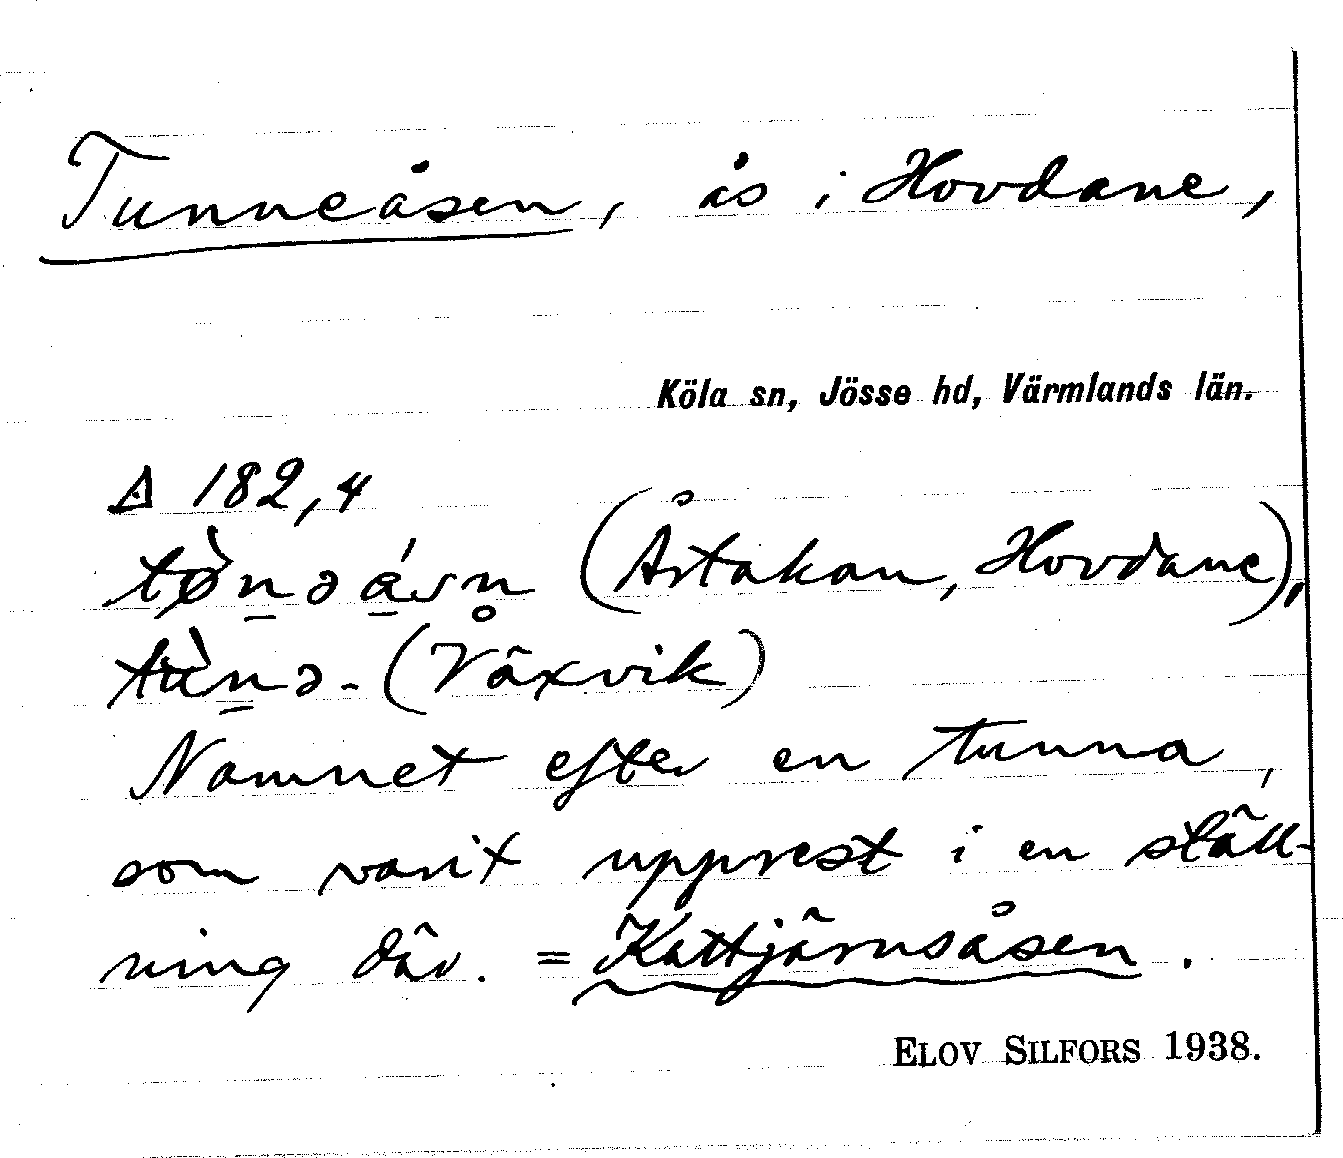 Tunneåsen, ås i Hovdane,
Köla sn, Jösse hd, Värmlands län.
△ 182,4
tø̀n̠ǝ á̠sn̥ (Årtakan, Hovdane),
tʉ̀n̠ǝ- (Växvik)
Namnet efter en tunna,
som varit upprest i en ställ-
ning där. = Kattjärnsåsen.
ELOV SILFORS 1938.